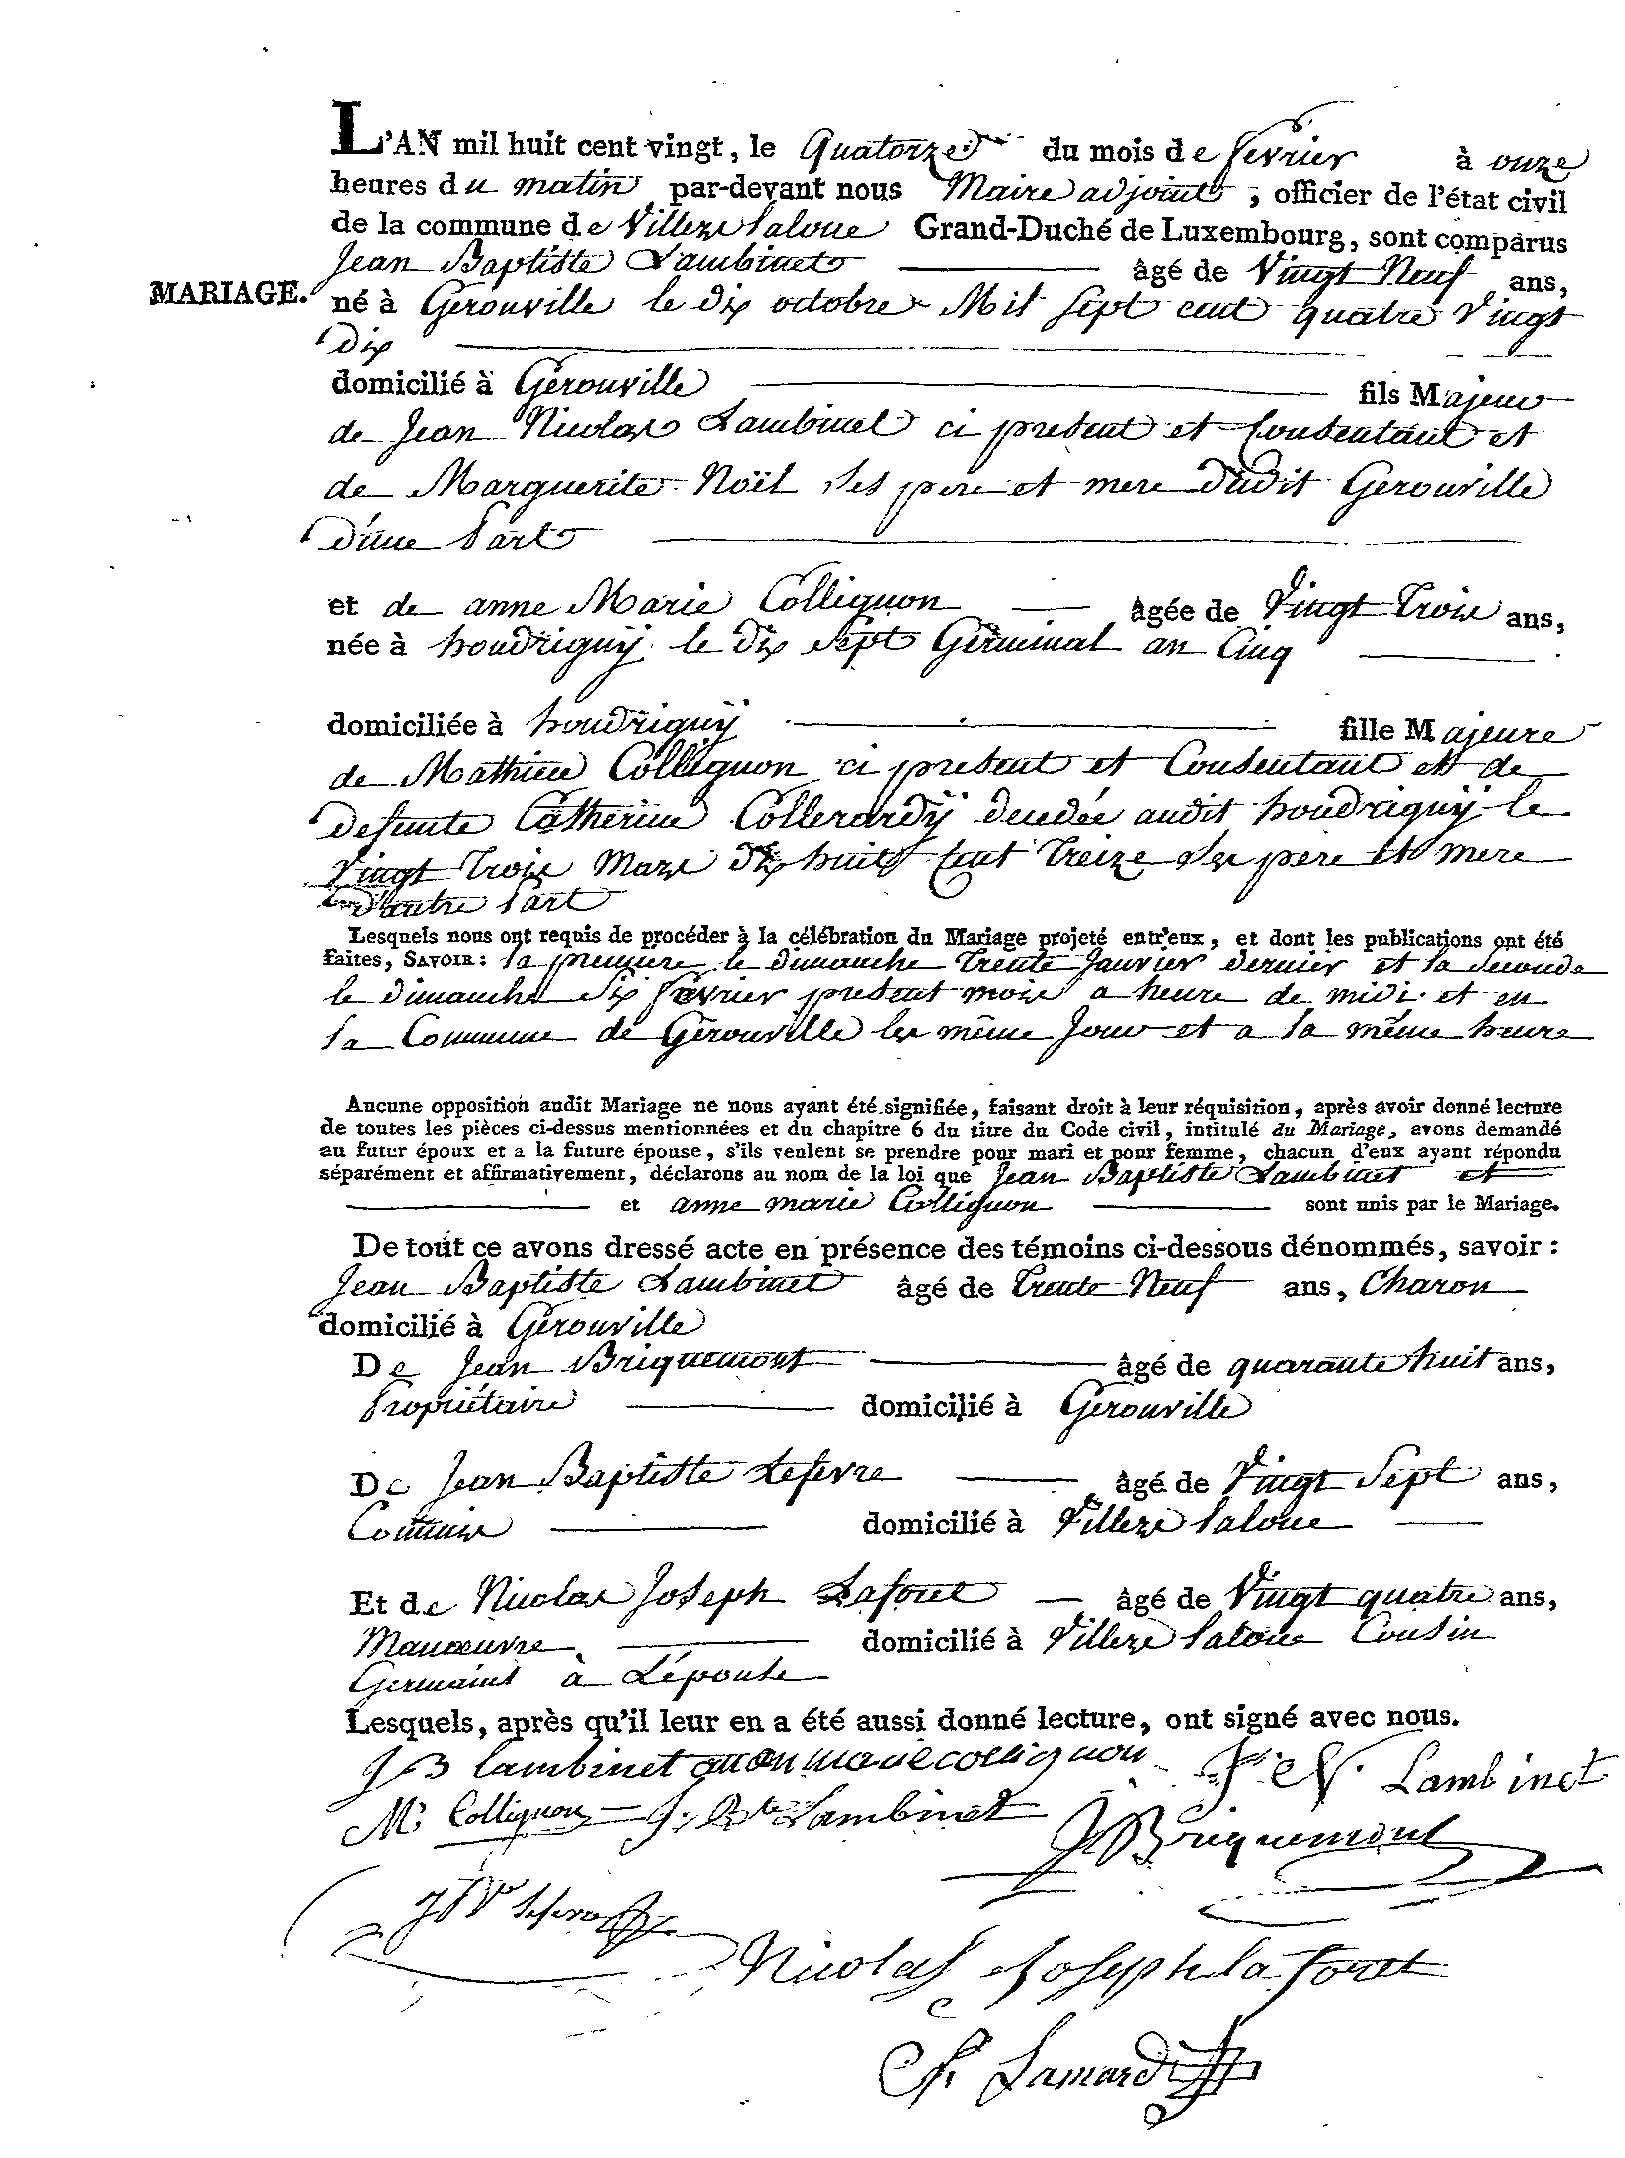 L'AN mil huit cent vingt, le Quatorze du mois de fevrier à onze
heures du matin par-devant nous Maire adjoint, officier de l'état civil
de la commune de Villerz la loue Grand-Duché de Luxembourg, sont comparus
Jean Baptiste Lambinet âgé de Vingt Neuf ans,
MARIAGE. né à Gerouville le dix octobre Mil Sept cent quatre Vingt
Dix
domicilié à Gerouville fils Majeur
de Jean Nicolas Lambinet ci present et Consentant et
de Marguerite Noël Ses pere et mere dudit Gerouville
d'une Part
et de anne Marie Collignon âgée de Vingt Trois ans,
née à houdrigny le Dix Sept Germinal an Cinq
domiciliée à houdrigny fille Majeure
de Mathieu Collignon ci present et Consentant et de
defunte Catherine Collerardy decedée audit houdrigny le
Vingt Trois Mars Dix huit Cent Treize Ses pere et mere
d'autre Part
Lesquels nous ont requis de procéder à la célébration du Mariage projeté entr'eux, et dont les publications ont été
faites, SAVOIR: la premiere le dimanche Trente Janvier dernier et la Seconde
le dimanche Six fevrier present mois a heure de midi et en
la Commune de Gerouville les même Jour et a la même heure
Aucune opposition audit Mariage ne nous ayant été signifiée, faisant droit à leur réquisition, après avoir donné lecture
de toutes les pièces ci-dessus mentionnées et du chapitre 6 du titre du Code civil, intitulé du Mariage, avons demandé
au futur époux et a la future épouse, s'ils veulent se prendre pour mari et pour femme, chacun d'eux ayant répondu
séparément et affirmativement, déclarons au nom de la loi que Jean Baptiste Lambinet et
et anne marie Collignon sont unis par le Mariage.
De tout ce avons dressé acte en présence des témoins ci-dessous dénommés, savoir:
Jean Baptiste Lambinet âgé de Trente Neuf ans, Charon
domicilié à Gerouville
De Jean Briquemont âgé de quarante huit ans,
Propriétaire domicilié à Gerouville
De Jean Baptiste Lefevre âgé de Vingt Sept ans,
Commis domicilié à Villerz la loue
Et de Nicolas Joseph Laforet âgé de Vingt quatre ans,
Manœuvre domicilié à Villerz la loue Cousin
Germains à L'épouse
Lesquels, après qu'il leur en a été aussi donné lecture, ont signé avec nous.
J B lambinet marie collignon J N Lambinet
M Collignon J. Bte Lambinet
J Briquemont
J Bte lefevre
Nicolas Joseph la foret